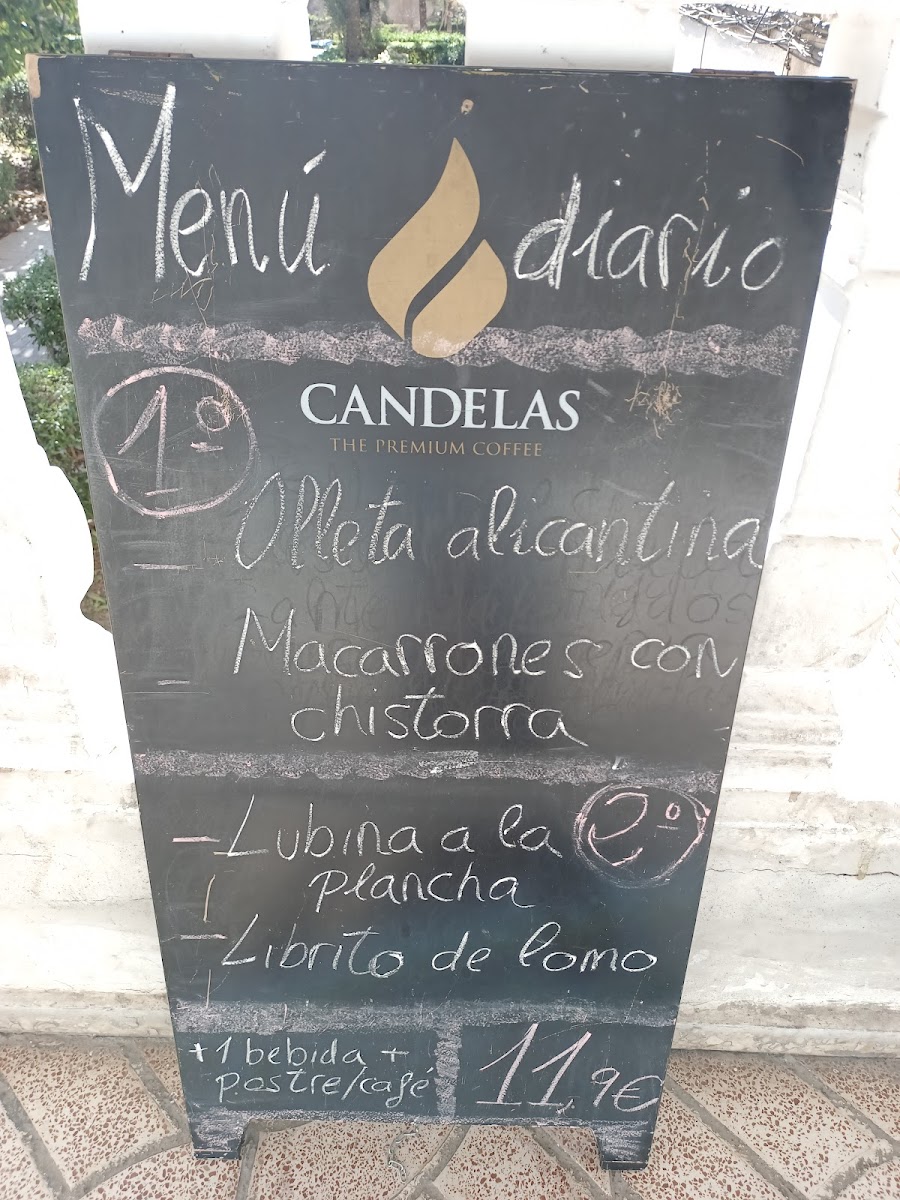 Menú diario
CANDELAS
THE PREMIUM COFFEE
1º
- Olleta alicantina
- Macarrones con
chistorra
2º
- Lubina a la
plancha
- Librito de lomo
+1 bebida +
postre/café
11,9€